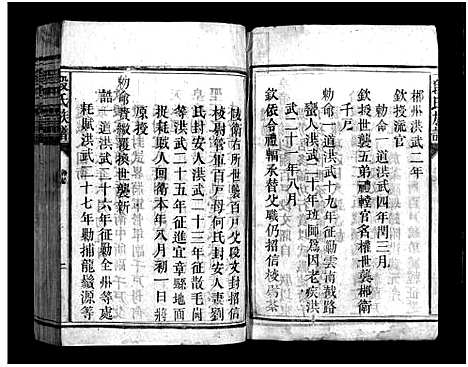 郴州洪武二年
欽授流官
勅命一道洪武四年閏三月
欽授世襲五弟禮體官名權世襲郴衛
千戶
勅命一道洪武十九年征勦雲南截路
蠻人洪武二十年班師爲因老疾洪
武二十一年八月
欽依令禮輻承替父職仍招信校尉茶
陵衛右所世襲百戶父段文封招信
校尉管軍百戶母何氏封安人妻劉
氏封安人洪武二十三年征散毛崗
等洪武二十五年征進宜章縣地面
殺獲賊人回衛本年八月初一日將
原授
勅命晋繳襲換世襲新
誥一道洪武二十六年征勦全州等處
耗賦洪武二十七年勦捕龍鬚源等
段氏族譜